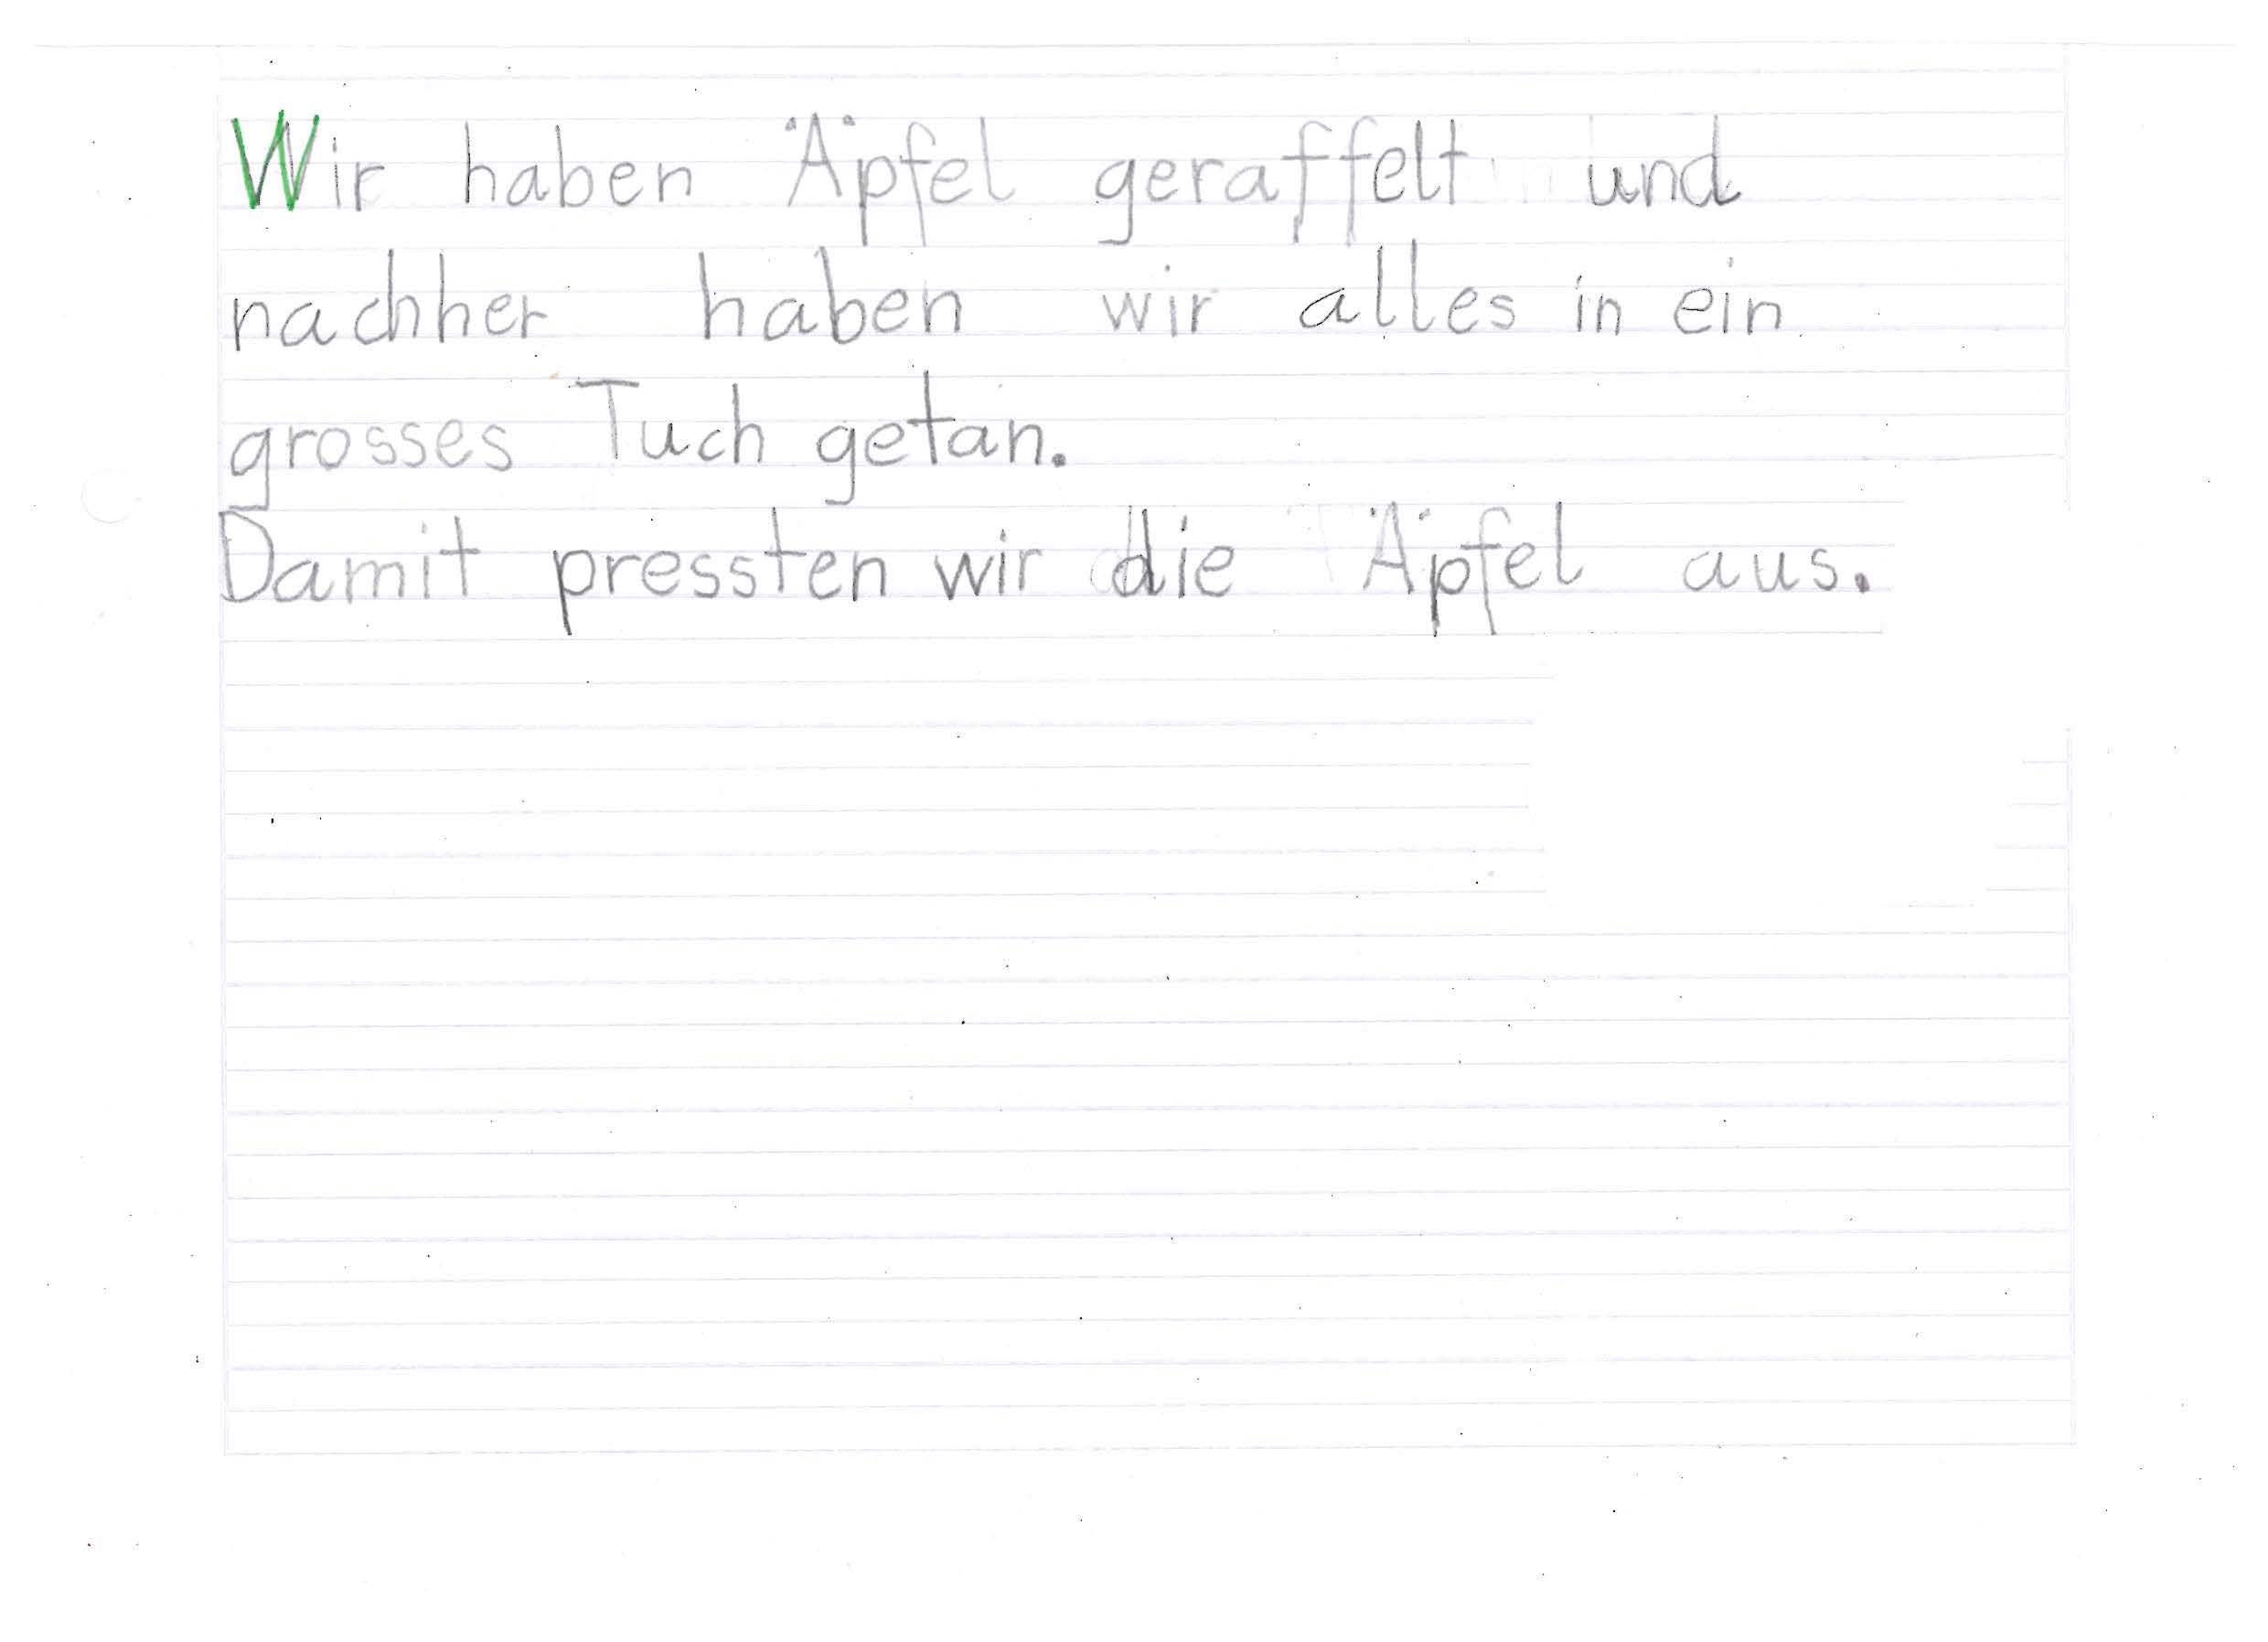 Wir haben Äpfel geraffelt und
nachher haben wir alles in ein
grosses Tuch getan.
Damit pressten wir die Äpfel aus.